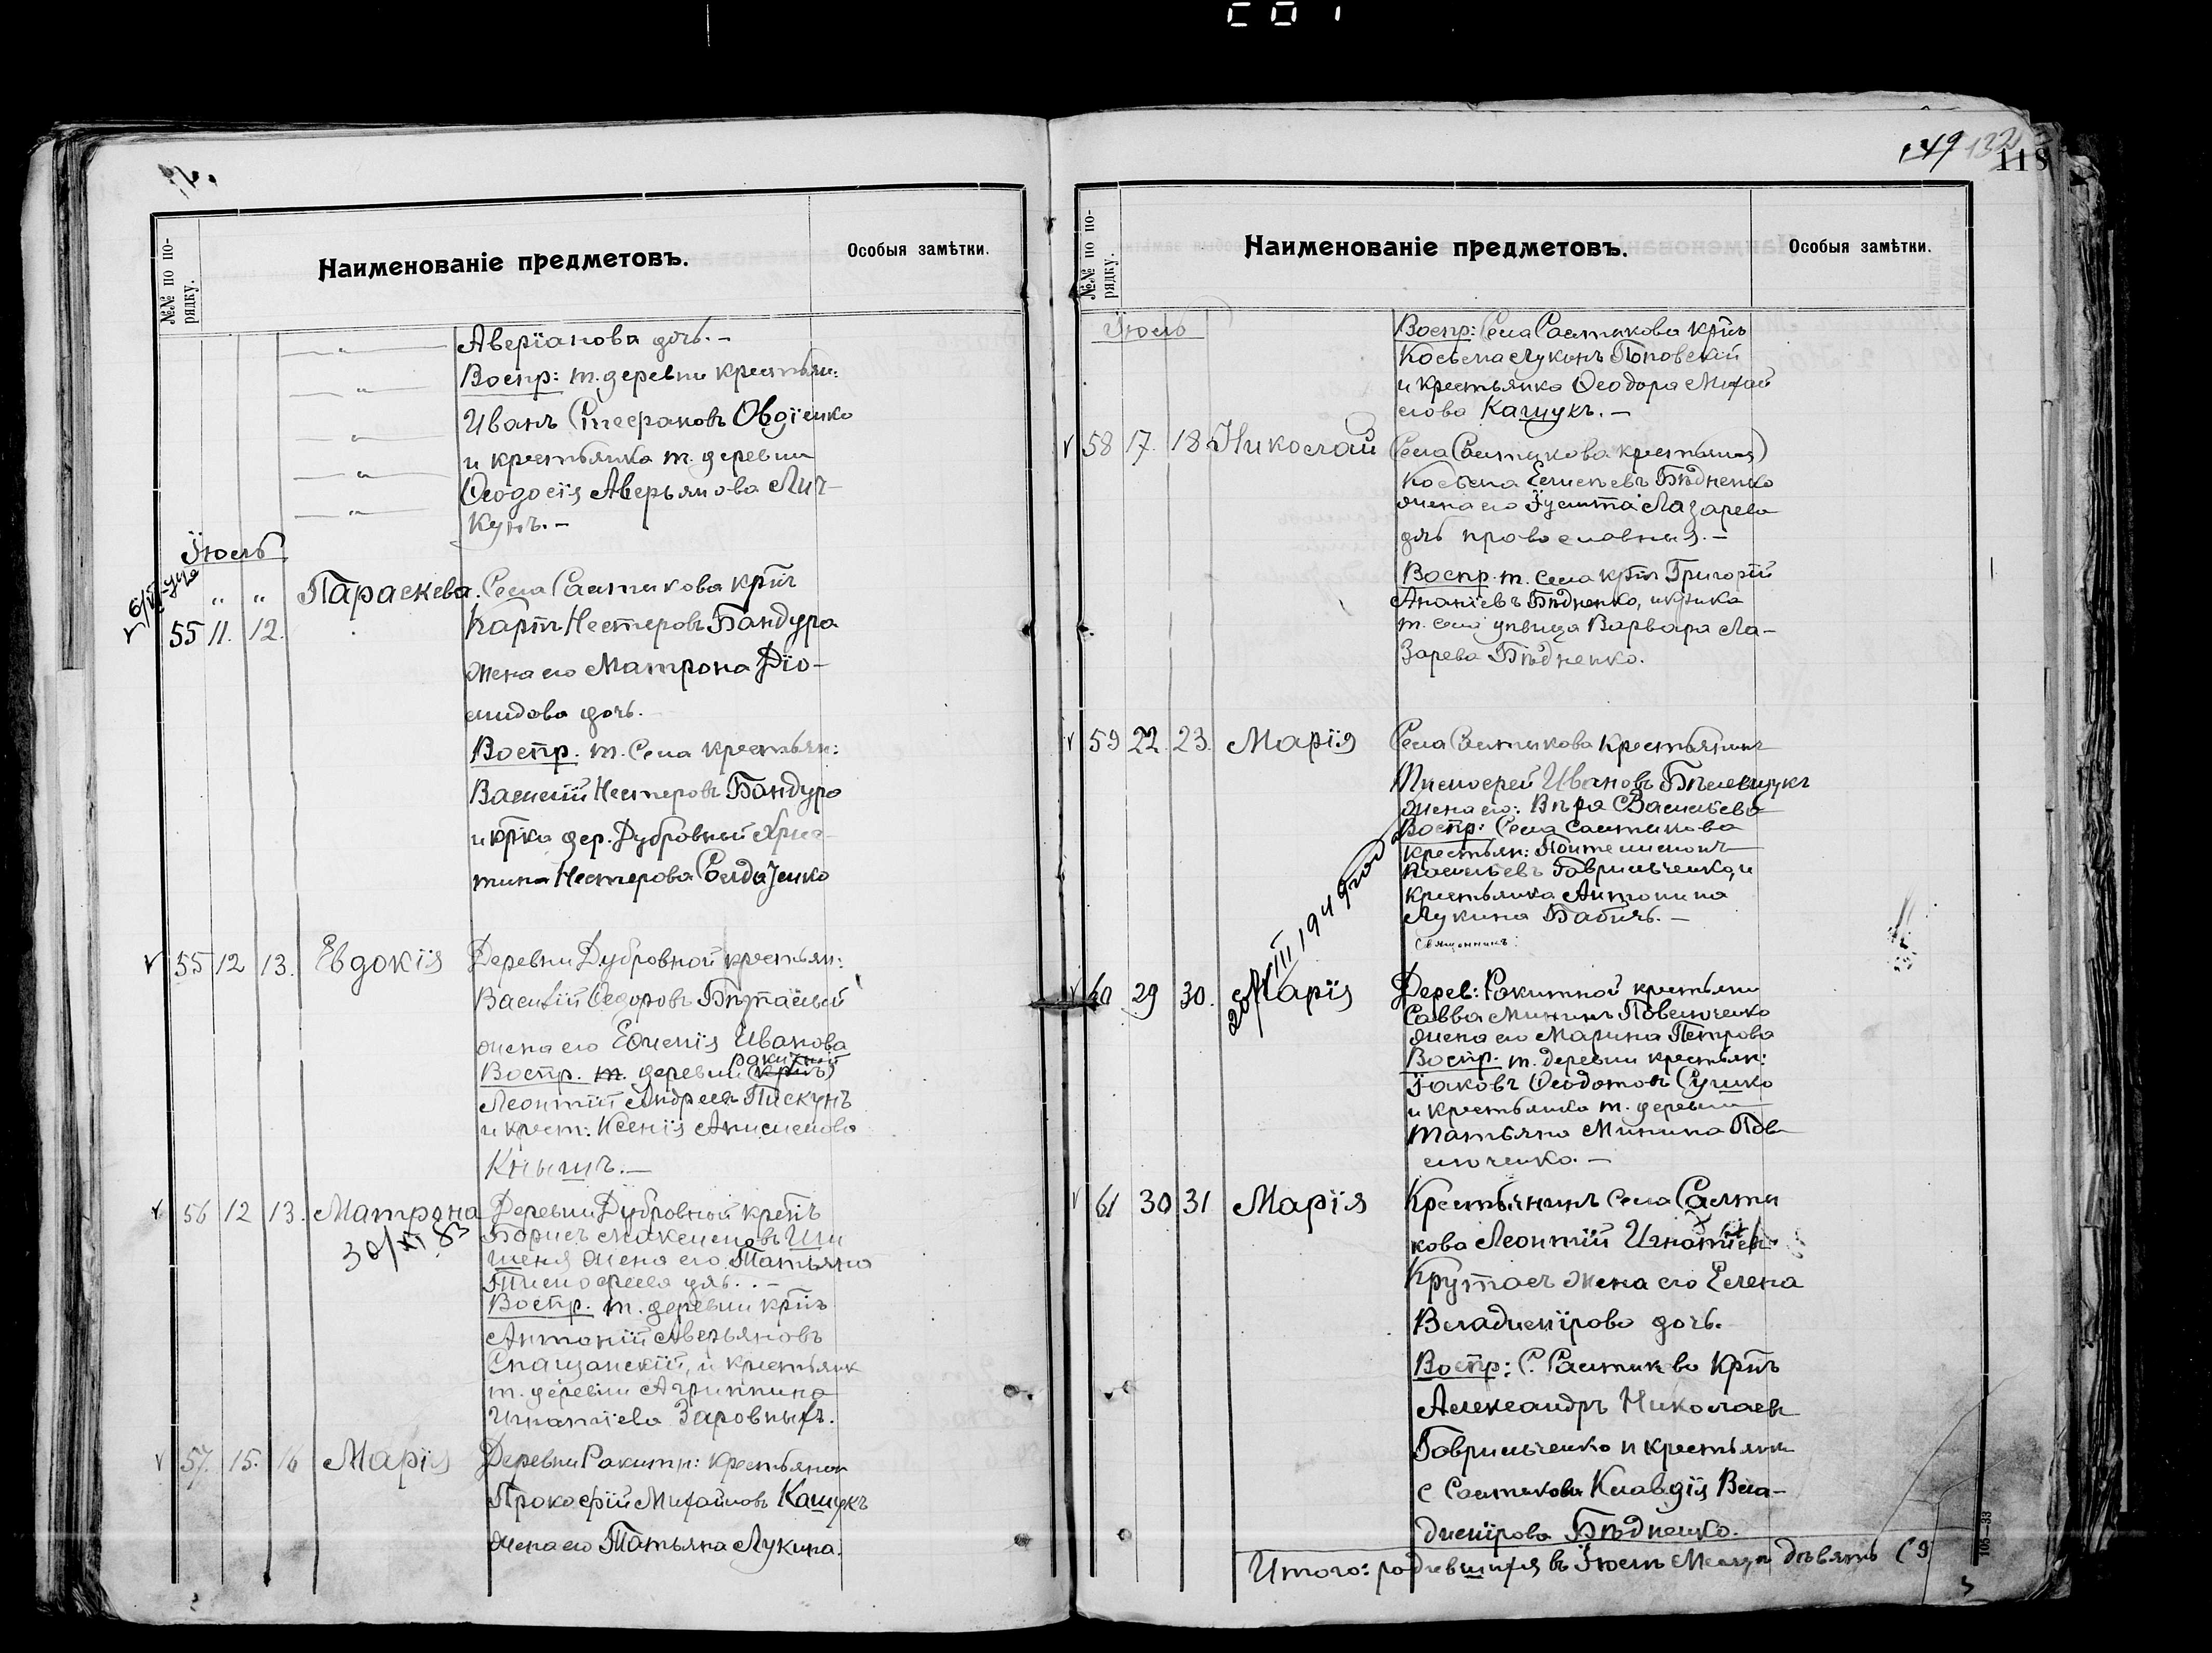 49 132
118
№№ по по-
рядку.
Наименованіе предметовъ.
Особыя замѣтки.
Аверіанова дочь. —
Воспр: т. деревни крестьян:
Иванъ Стефановъ Овдіенко
и крестьянка т. деревни
Ѳеодосія Аверьянова Лич-
кунъ. —
Іюль
" " Параскева. Села Салтыкова кр͠нъ
55 11. 12. Карпъ Нестеровъ Бандура
жена его Матрона Діо-
мидова дочь.
Воспр. т. Села крестьян:
Василій Нестеровъ Бандура
и кр͠нка дер. Дубровный Хрис-
тина Нестерова Солдатенко
55 12 13. Евдокія Деревни Дубровной крестьян:
Василій Ѳедоровъ
жена его Евгенія Иванова
ракитной
Воспр. т. деревни кр͠нъ
Леонтій Андреевъ Пискунъ
и крест: Ксенія Анисимова
Кнышъ. —
56 12 13. Матрона Деревни Дубровной кр͠нъ
30/XI 83
Борисъ Максимовъ Иш
шеня жена его Татьяна
Тимофеева дчь. —
Воспр. т. деревни кр͠нъ
Антоній Аверьяновъ
Спащанскій, и крестьянк
т. деревни Агриппина
Игнатіева Заровныхъ.
57. 15. 16 Марія Деревни Ракитн: крестьянин
Прокофій Михайловъ Кашукъ
жена его Татьяна Лукина.
№№ по по-
рядку.
Наименованіе предметовъ.
Особыя замѣтки.
Іюль
Воспр: Села Салтыкова кр͠нъ
Косьма Лукинъ Поповскій
и крестьянка Ѳеодора Михай
лова Кашукъ. —
58 17. 18. Николай Села Салтыкова крестьянин
Косьма Елисеевъ Бѣдненко
жена его Іулитта Лазарева
дчь православныя. —
Воспр. т. села кр͠нъ Григорій
Ананіевъ Бѣдненко, и кр͠нка
т. села дѣвица Варвара Ла-
зарева Бѣдненко.
59 22. 23. Марія Села Салтыкова Крестьянинъ
Тимофей Ивановъ
жена его: Вѣра Васильева
Воспр: Села Салтыкова
крестьян: Пантелимонъ
Васильевъ Гаврильченко, и
крестьянка Антонина
Лукина Бабичъ. —
Священникъ:
60 29 30. Марія Дерев: Ракитной крестьянин
20/VIII 1949 год
Савва Мининъ Павлюченко
жена его Марина Петрова
Воспр. т. деревни крестьян:
Іаковъ Ѳеодотовъ Сушко
и крестьянка т. деревни
Татьяна Минина Пав-
люченко. —
61 30 31 Марія Крестьянинъ села Салты
кова Леонтій Игнатіев
Крутасъ жена его Елена
Владимірова дочь.
Воспр: С. Салтыкова кр͠нъ
Александръ Николаев
Гаврильченко и крестьянк
с Салтыкова Клавдія Вла-
димірова Бѣдненко.
Итого: родившихся въ Іюлѣ Месяцѣ девять (9
105—33